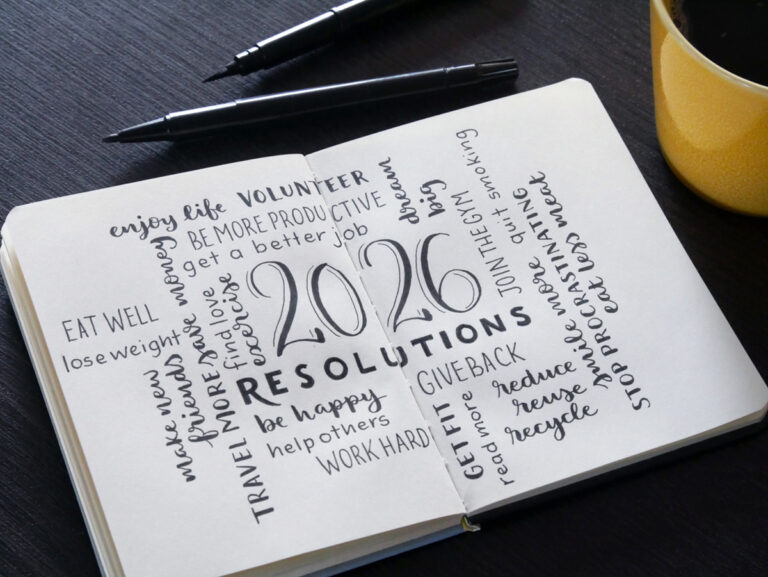 enjoy life
VOLUNTEER
BE MORE PRODUCTIVE
get a better job
dream
big
JOIN THE GYM
quit smoking
EAT WELL
lose weight
make new
friends
save money
TRAVEL MORE
find love
exercise
2026
RESOLUTIONS
be happy
help others
WORK HARD
GIVE BACK
GET FIT
read more
reduce
reuse
recycle
smile more
STOP PROCRASTINATING
eat less meat